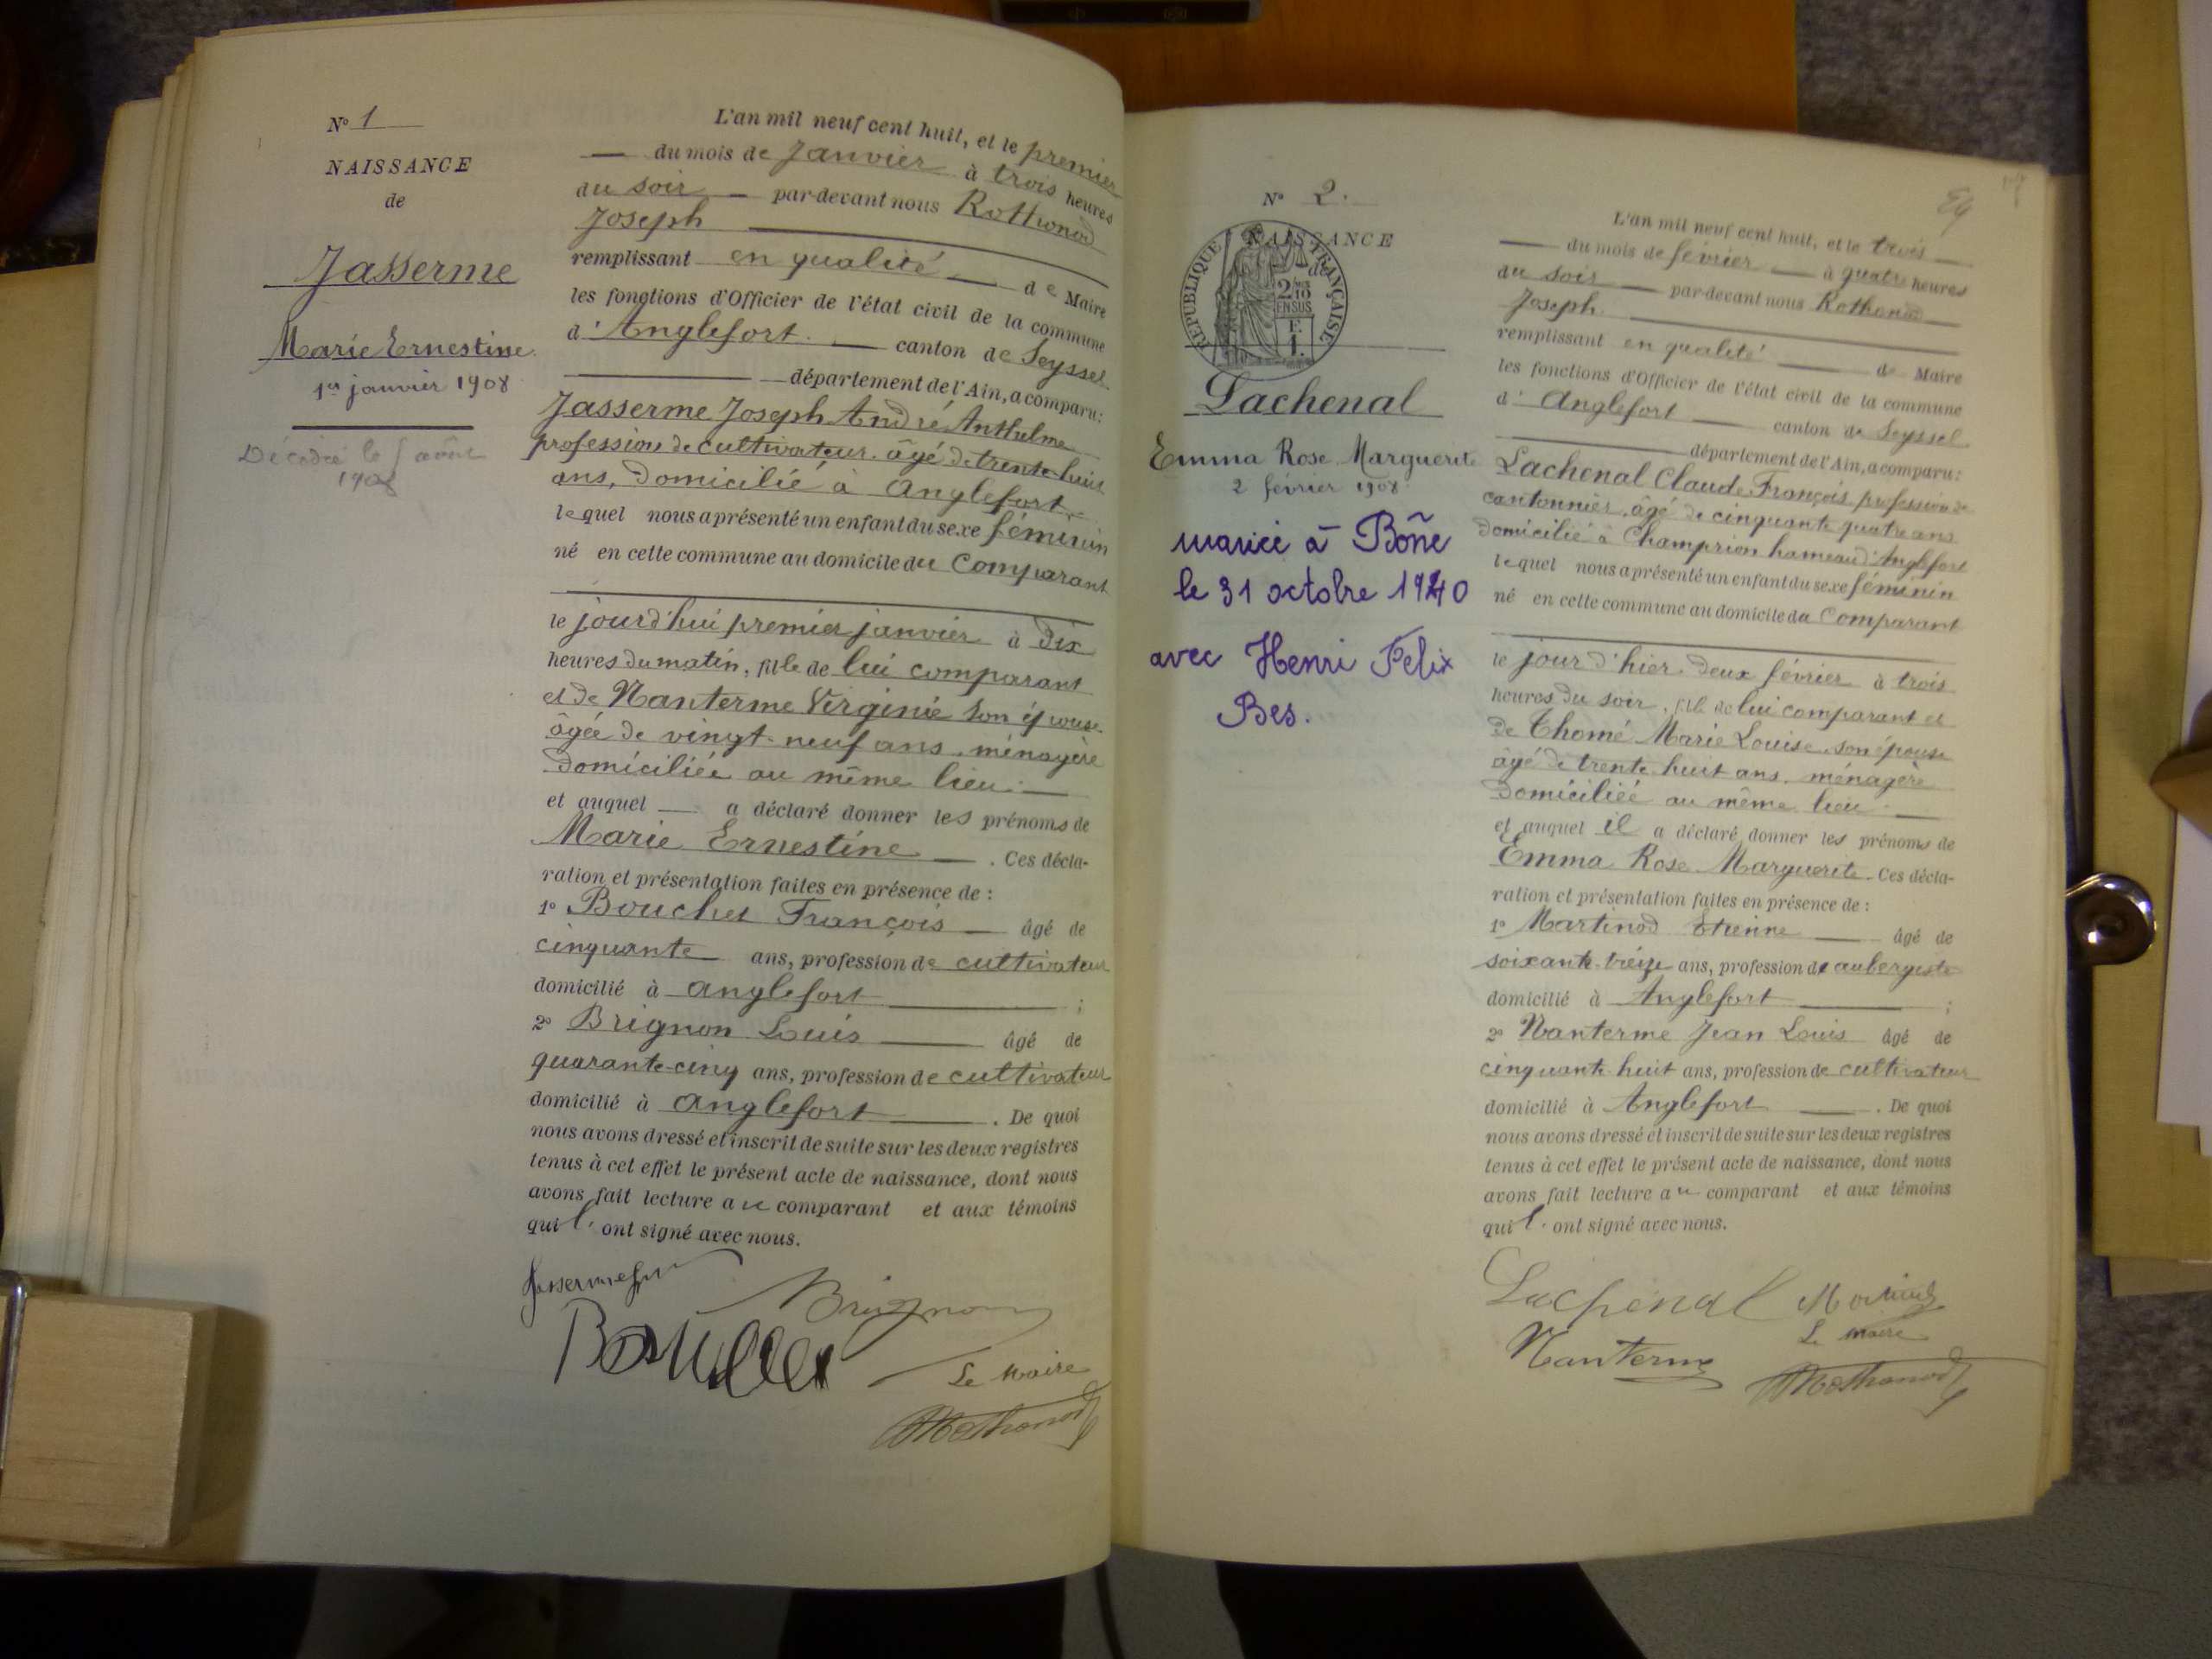 N° 1
NAISSANCE
de
Jasserme
Marie Ernestine
1er janvier 1908
Décédée le août
1908
L'an mil neuf cent huit, et le premier
du mois de Janvier à trois heures
du soir par-devant nous Rothonod
Joseph
remplissant en qualité de Maire
les fonctions d'Officier de l'état civil de la commune
d'Anglefort canton de Seyssel
département de l'Ain, a comparu:
Jasserme Joseph André Anthelme
profession de cultivateur âgé de trente-huit
ans, domicilié à Anglefort
lequel nous a présenté un enfant du sexe féminin
né en cette commune au domicile du comparant
le jourd'hui premier janvier à dix
heures du matin, fille de lui comparant
et de Nanterme Virginie son épouse
âgée de vingt-neuf ans, ménagère
domiciliée au même lieu
et auquel a déclaré donner les prénoms de
Marie Ernestine. Ces décla-
ration et présentation faites en présence de :
1° Bouchet François âgé de
cinquante ans, profession de cultivateur
domicilié à Anglefort ;
2° Brignon Louis âgé de
quarante-cinq ans, profession de cultivateur
domicilié à Anglefort. De quoi
nous avons dressé et inscrit de suite sur les deux registres
tenus à cet effet le présent acte de naissance, dont nous
avons fait lecture au comparant et aux témoins
qui l'ont signé avec nous.
Jasserme
Brignon
Bouchet
Le Maire
Rothonod
N° 2.
NAISSANCE
de
RÉPUBLIQUE FRANÇAISE
2/10
EN SUS
E.
1.
Lachenal
Emma Rose Marguerite
2 février 1908
mariée à Bône
le 31 octobre 1940
avec Henri Felix
Bes.
L'an mil neuf cent huit, et le trois
du mois de février à quatre heures
du soir par-devant nous Rothonod
Joseph
remplissant en qualité de Maire
les fonctions d'Officier de l'état civil de la commune
d'Anglefort canton de Seyssel
département de l'Ain, a comparu:
Lachenal Claude François profession de
cantonnier, âgé de cinquante quatre ans
domicilié à Champrion hameau d'Anglefort
lequel nous a présenté un enfant du sexe féminin
né en cette commune au domicile du comparant
le jour d'hier deux février à trois
heures du soir, fille de lui comparant et
de Thomé Marie Louise son épouse
âgé de trente huit ans. ménagère
domiciliée au même lieu
et auquel il a déclaré donner les prénoms de
Emma Rose Marguerite. Ces décla-
ration et présentation faites en présence de :
1° Martinod Etienne âgé de
soixante-treize ans, profession de aubergiste
domicilié à Anglefort ;
2° Nanterme Jean Louis âgé de
cinquante huit ans, profession de cultivateur
domicilié à Anglefort. De quoi
nous avons dressé et inscrit de suite sur les deux registres
tenus à cet effet le présent acte de naissance, dont nous
avons fait lecture au comparant et aux témoins
qui l'ont signé avec nous.
Lachenal Martinod
Le Maire
Nanterme
Rothonod